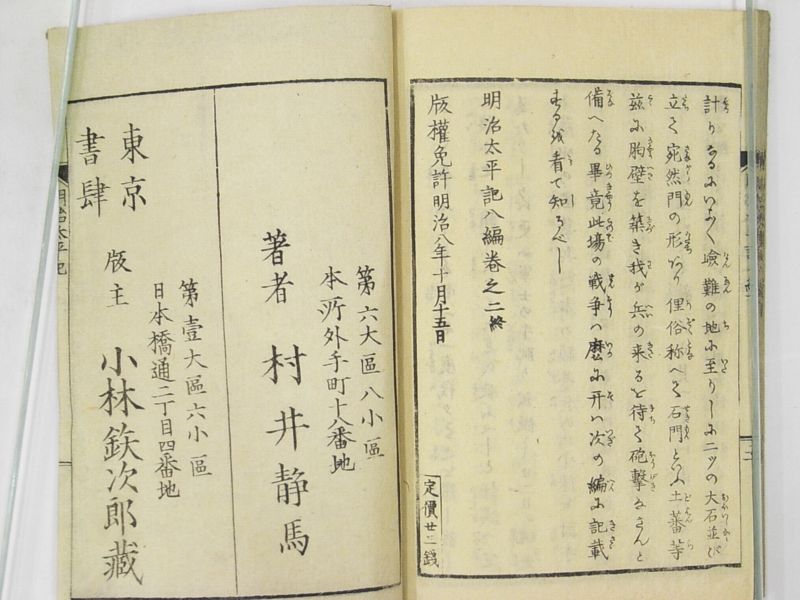 計りなるにいよ〳〵嶮難の地に至りしに二ツの大石並び
立て宛然門の形あり俚俗称へて石門といふ土蕃等
茲に胸壁を築き我が兵の来るを待て砲撃なさんと
備へたる畢竟此場の戦争ハ麼に开ハ次の編に記載
するを看て知るべし
明治太平記八編巻之二終
版權免許明治八年十月十五日
定價廿二銭
第六大區八小區
本所外手町十八番地
著者 村井静馬
第壹大區六小區
日本橋通二丁目四番地
版主 小林鉄次郎藏
東京
書肆
明治太平記